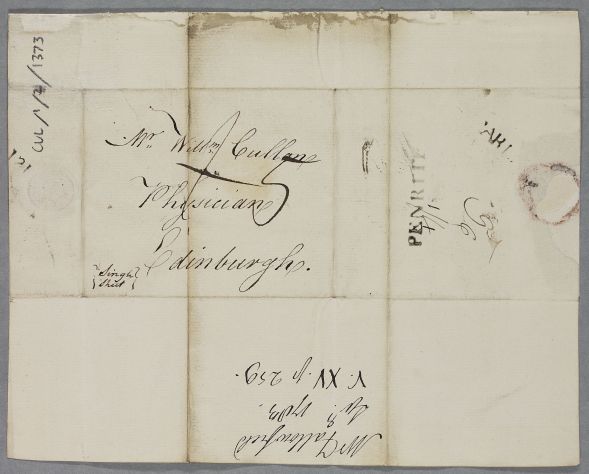 CUL/1/2/1373
Mr. Willm Cullen
Physician
Edinburgh.
Single
Sheet
PENRITH
Mr Fallowfield
1783.
V. XV. p 259.